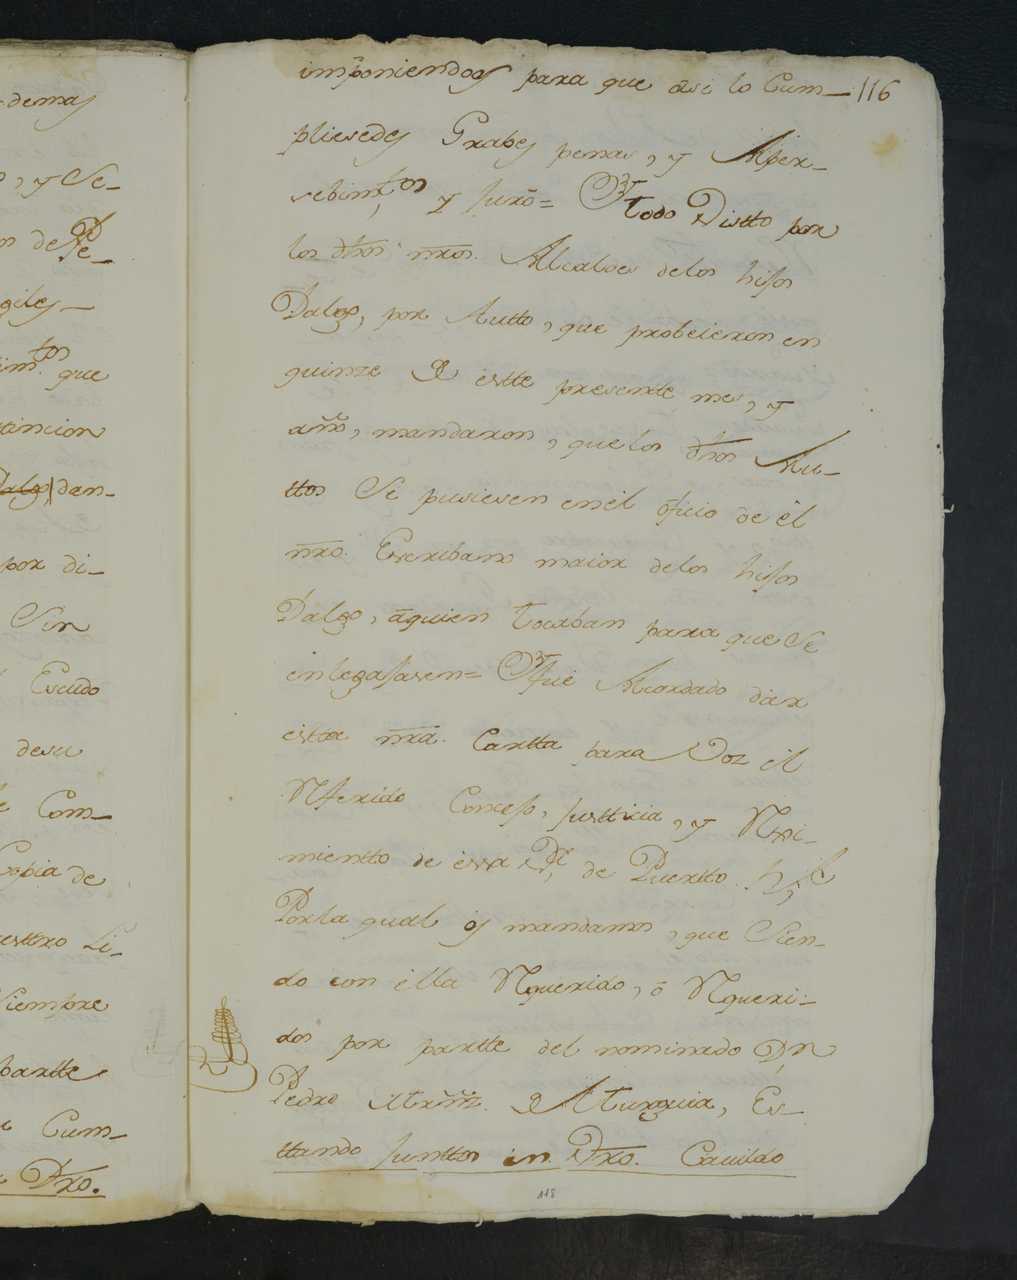 demas
, y Se-
n de Pe-
giles-
im.tos que
tincion
Dalgo, dan-
por di-
Sin
Escudo
desu
Com-
Copia de
uesttro Li-
Siempre
partte
Cum-
Dro.
imponiendoos para que asi lo Cum- 116
pliesedes Grabes penas, y Aper-
sebim.tos y Juro= Y todo Distto por
los dhos nros. Alcaldes delos hijos
Dalgo, por Autto, que probeieron en
quinze de estte presente mes, y
año, mandaron, que los dhos Au-
ttos Se pusiesen en el ofizio de el
nro. Escribano maior delos hijos
Dalgo, a quien tocaban para que Se
enlegajasen= Y fue Acordado dar
esta nra. Cartta para Voz el
Referido Conzejo, Justticia, y Rexi-
mientto de essa Va. de Puertto
Porla qual os mandamos, que Sien-
do con ella Requerido, o Requeri-
dos por partte del nominado Dn
Pedro Mrñz. de Aturguia, Es-
ttando Junttos en Dro. Cavildo
118